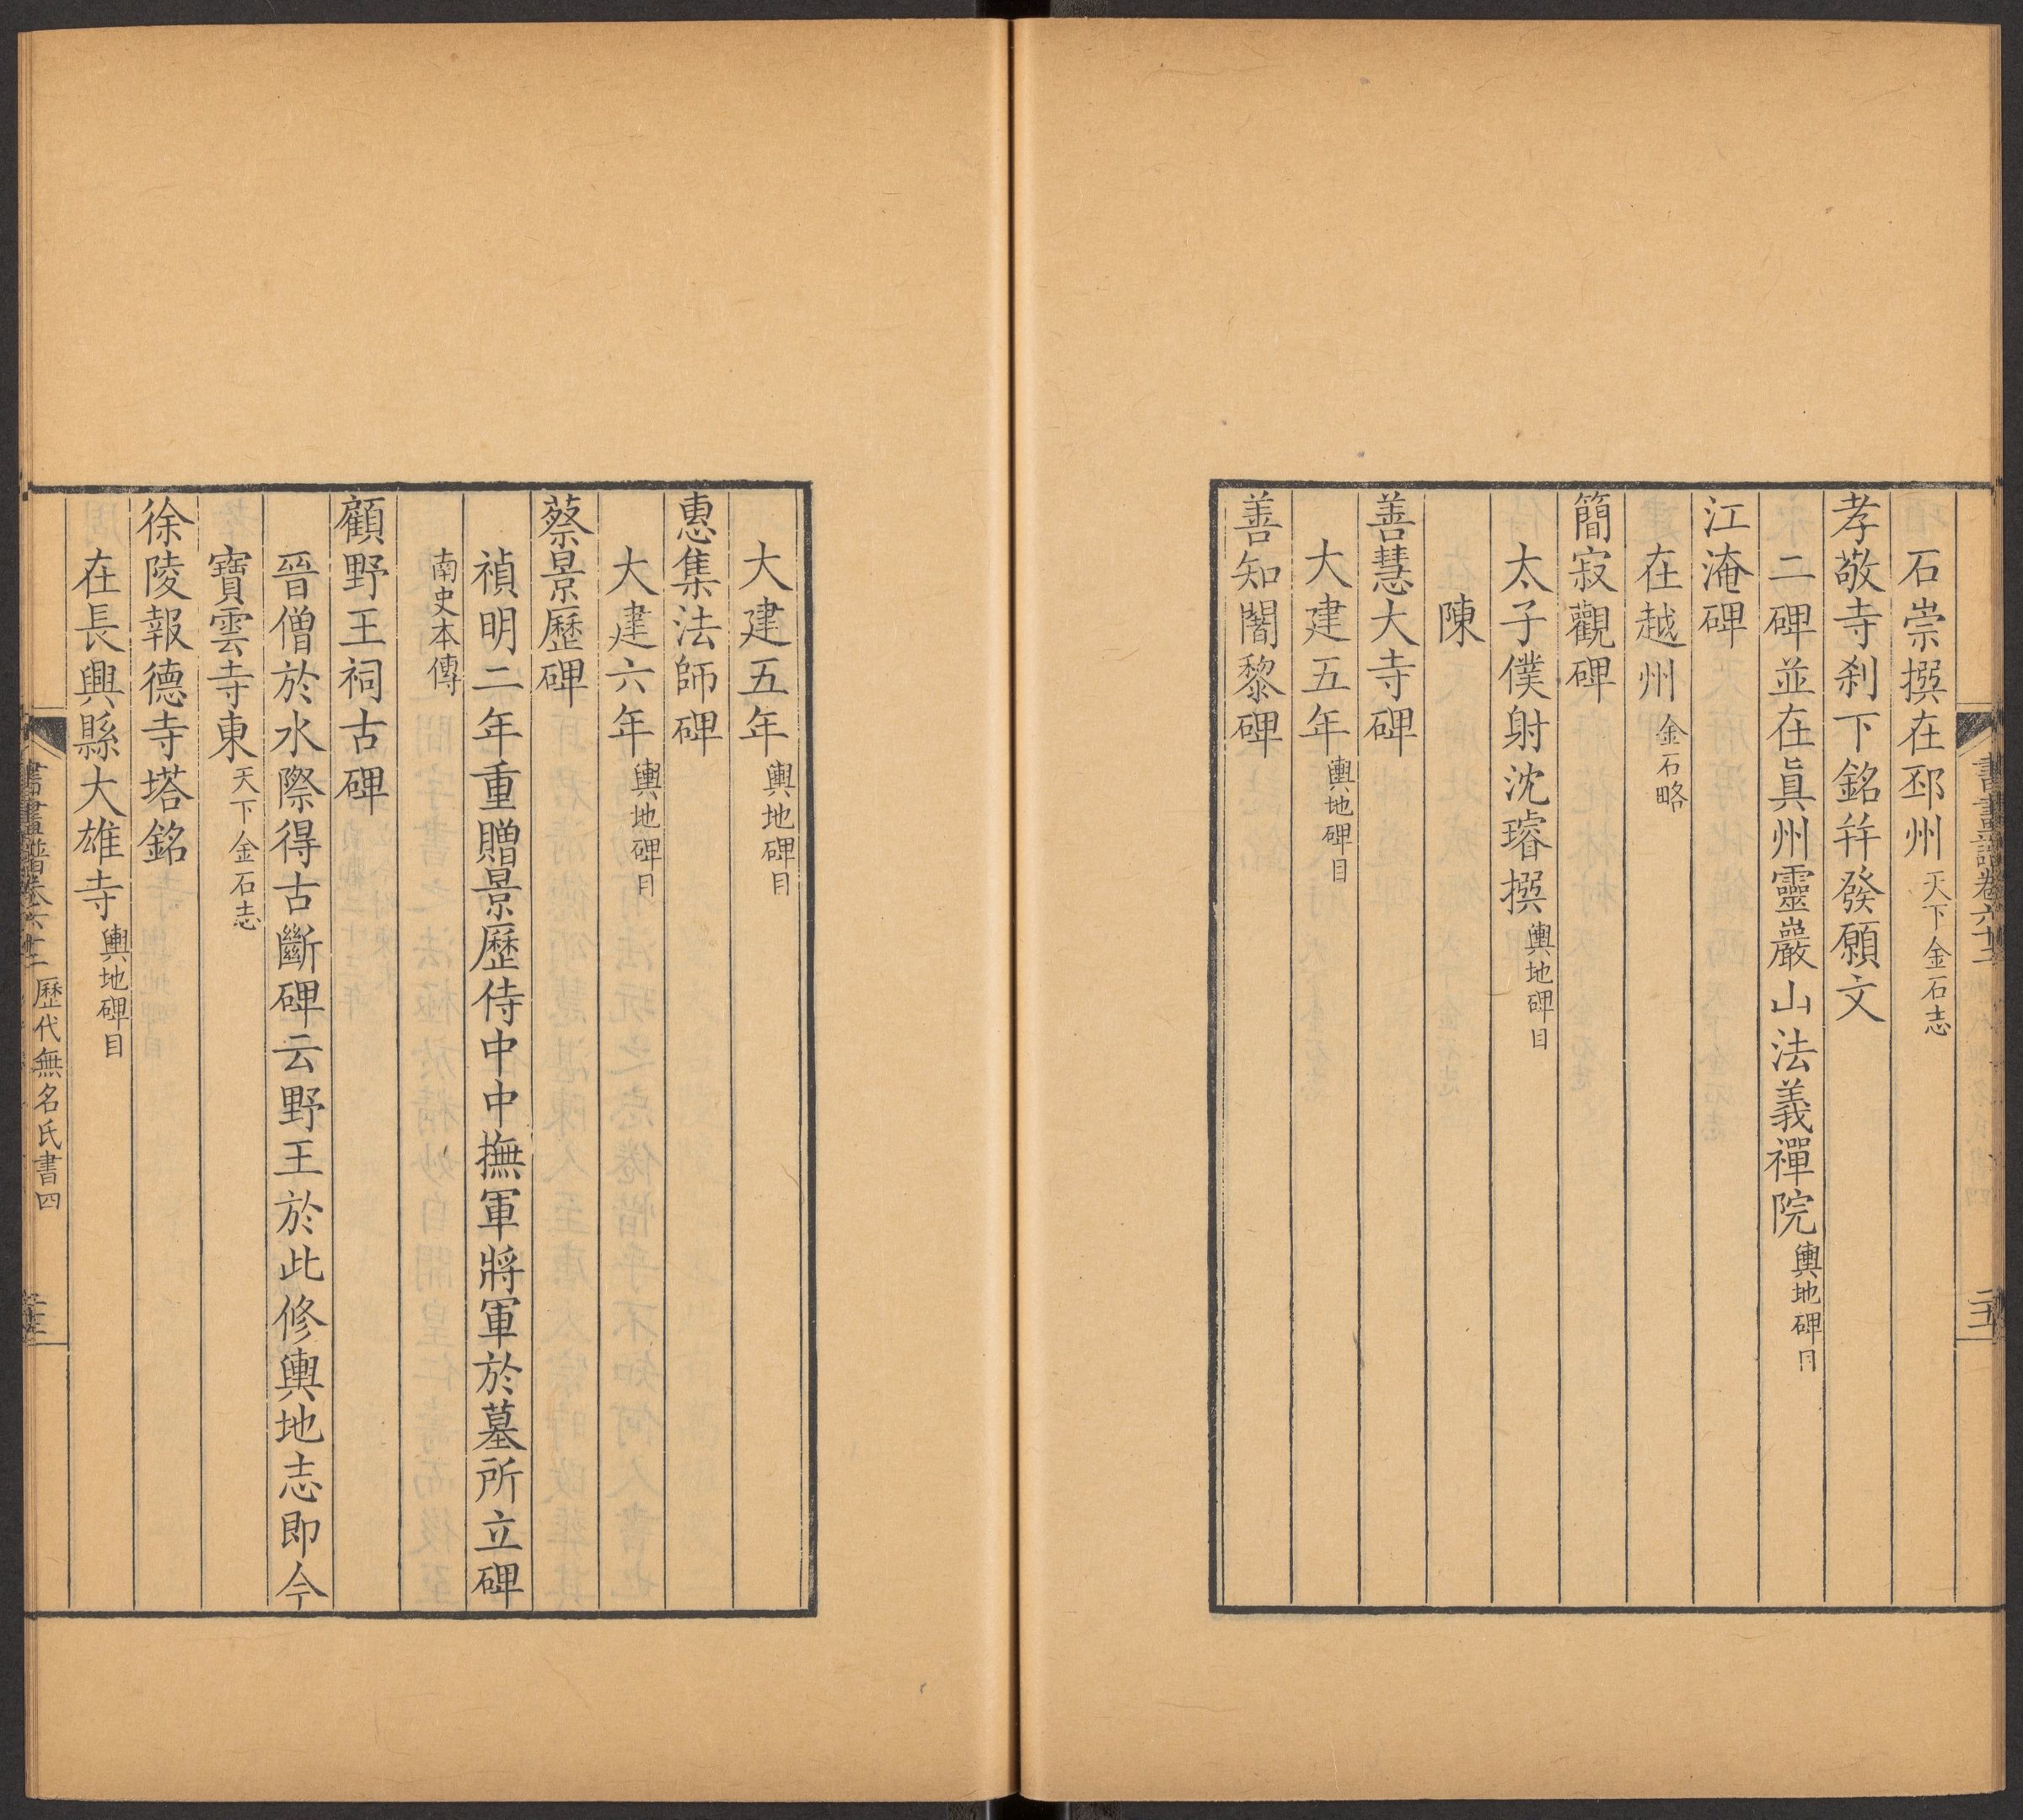 石崇撰在邳州天下金石志
孝敬寺刹下銘幷發願文
二碑並在眞州靈巖山法義禪院輿地碑目
江淹碑
在越州金石略
簡寂觀碑
太子僕射沈璿撰輿地碑目
陳
善慧大寺碑
大建五年輿地碑目
善知闍黎碑
大建五年輿地碑目
惠集法師碑
大建六年輿地碑目
蔡景歷碑
禎明二年重贈景歷侍中中撫軍將軍於墓所立碑
南史本傳
顧野王祠古碑
晉僧於水際得古斷碑云野王於此修輿地志即今
寶雲寺東天下金石志
徐陵報德寺塔銘
在長興縣大雄寺輿地碑目
歷代無名氏書四